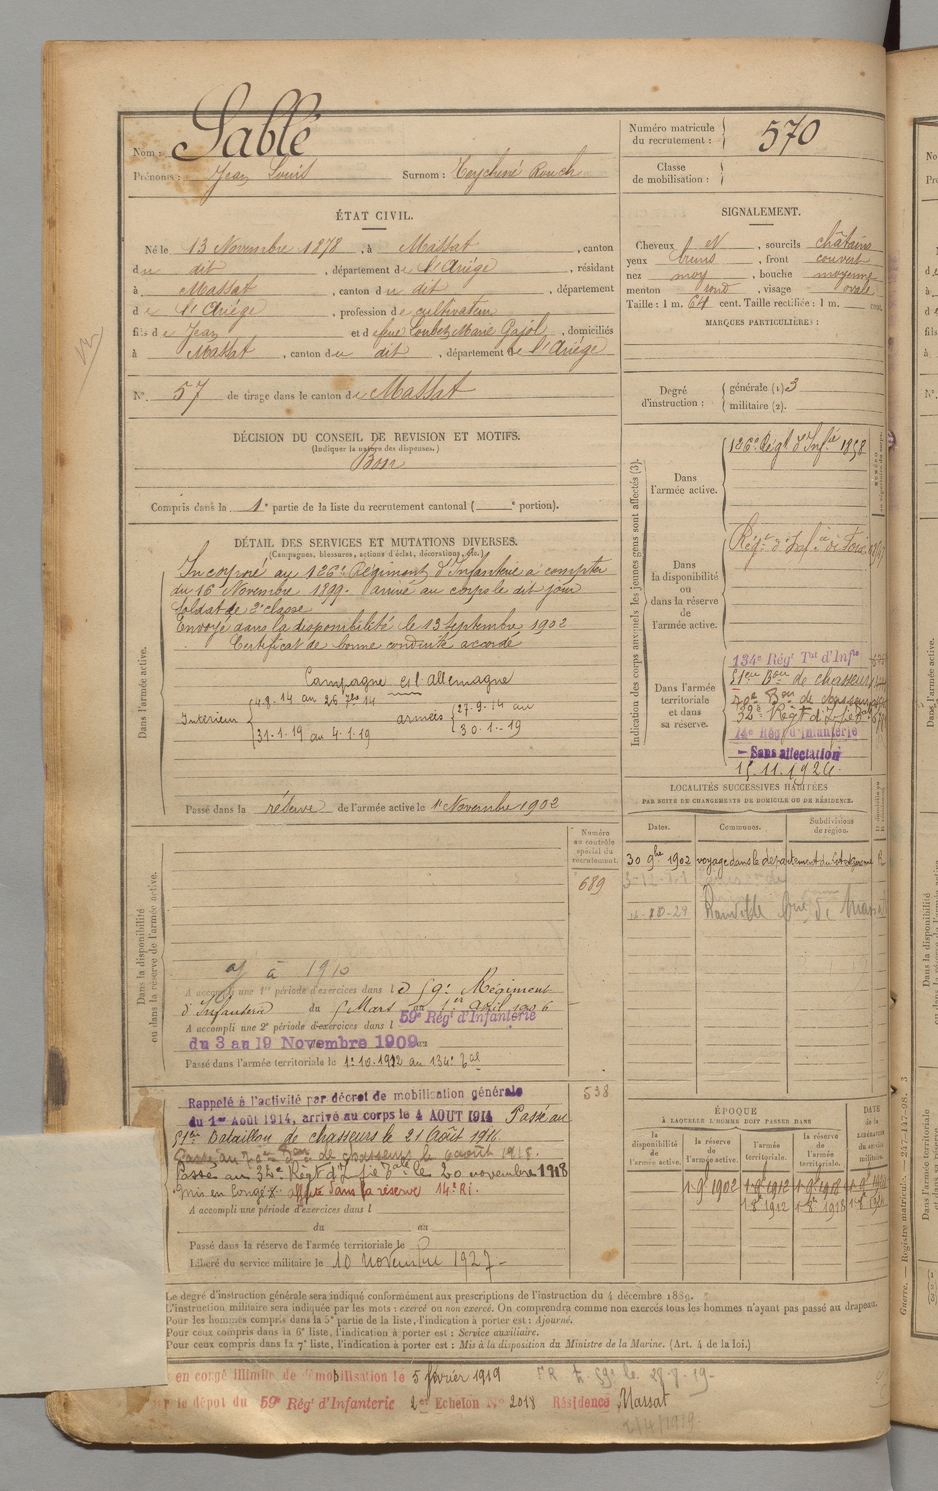 Nom : Sablé
Prénoms : Jean Louis Surnom : Teychené Rouch
Numéro matricule du recrutement : 570
Classe de mobilisation :
ÉTAT CIVIL.
Né le 13 Novembre 1878, à Massat, canton
du dit, département de l'Ariége, résidant
à Massat, canton du dit, département
de l'Ariége, profession de cultivateur
fils de Jean et de feue Loubet Marie Pajol, domiciliés
à Massat, canton du dit, département de l'Ariége
N° 57 de tirage dans le canton de Massat
SIGNALEMENT.
Cheveux N, sourcils châtains
yeux bruns, front couvert
nez moy, bouche moyenne
menton rond, visage ovale
Taille : 1 m. 64 cent. Taille rectifiée : 1 m. cent.
MARQUES PARTICULIÈRES :
Degré d'instruction : générale (1) 3
militaire (2).
DÉCISION DU CONSEIL DE REVISION ET MOTIFS.
(Indiquer la nature des dispenses.)
Bon
Compris dans la 1e partie de la liste du recrutement cantonal ( e portion).
DÉTAIL DES SERVICES ET MUTATIONS DIVERSES.
(Campagnes, blessures, actions d'éclat, décorations, etc.)
Dans l'armée active.
Incorporé au 126e Régiment d'Infanterie à compter
du 16 Novembre 1899. Arrivé au corps le dit jour
Soldat de 2e classe
Envoyé dans la disponibilité le 13 Septembre 1902
Certificat de bonne conduite accordé
Campagne allemagne
Intérieur 4-8-14 au 26 7re 14
31-1-19 au 4-1-19
armées 27-9-14 au
30-1-19
Passé dans la réserve de l'armée active le 1 Novembre 1902
Indication des corps auxquels les jeunes gens sont affectés (3).
Dans l'armée active.
126e Régt d'Infie 1858
Dans la disponibilité ou dans la réserve de l'armée active.
Régt d'Infie de Foix
Dans l'armée territoriale et dans sa réserve.
134e Régt Tal d'Infie
51eme Bon de chasseurs
70e Bon de chasseurs
32e Régt d'Infie Tale
14e Rég. d'Infanterie
- Sans affectation
15.11.1926.
LOCALITÉS SUCCESSIVES HABITÉES
PAR SUITE DE CHANGEMENTS DE DOMICILE OU DE RÉSIDENCE.
Dates. Communes. Subdivisions de région.
30 9bre 1902 voyage dans le département du
Dans la disponibilité ou dans la réserve de l'armée active.
Numéro au contrôle spécial du recrutement.
689
à 1910
A accompli une 1re période d'exercices dans le 59e Régiment
d'Infanterie du 5 Mars au 1er Avril 1906
A accompli une 2e période d'exercices dans l 59e Régt d'Infanterie
du 3 au 19 Novembre 1909 au
Passé dans l'armée territoriale le 1-10-1912 au 134e Tal
538
Rappelé à l'activité par décret de mobilisation générale
du 1er Août 1914, arrivé au corps le 4 AOUT 1914 Passé au
51eme Bataillon de chasseurs le 21 Août 1916.
Passé au 70eme Bon de chasseurs le 6 août 1918.
Passé au 32e Régt d'Infie Tale le 20 novembre 1918
Mis en congé affecté dans la réserve 14e RI.
A accompli une période d'exercices dans l
du au
Passé dans la réserve de l'armée territoriale le
Libéré du service militaire le 10 novembre 1927-
ÉPOQUE
À LAQUELLE L'HOMME DOIT PASSER DANS
DATE de la LIBÉRATION du service militaire.
la disponibilité de l'armée active. la réserve de l'armée active. l'armée territoriale. la réserve de l'armée territoriale.
1-9e 1902 1-9e 1912 1-9e 1918
1-8e 1912 1-8e 1918
Le degré d'instruction générale sera indiqué conformément aux prescriptions de l'instruction du 4 décembre 1889.
L'instruction militaire sera indiquée par les mots : exercé ou non exercé. On comprendra comme non exercés tous les hommes n'ayant pas passé au drapeau.
Pour les hommes compris dans la 5e partie de la liste, l'indication à porter est : Ajourné.
Pour ceux compris dans la 6e liste, l'indication à porter est : Service auxiliaire.
Pour ceux compris dans la 7e liste, l'indication à porter est : Mis à la disposition du Ministre de la Marine. (Art. 4 de la loi.)
en congé illimité de démobilisation le 5 février 1919
le dépôt du 59e Régt d'Infanterie 2e Echelon N° 2018 Résidence Massat
2/4/1919
Guerre. — Registre matricule. — 217-147-98. 3